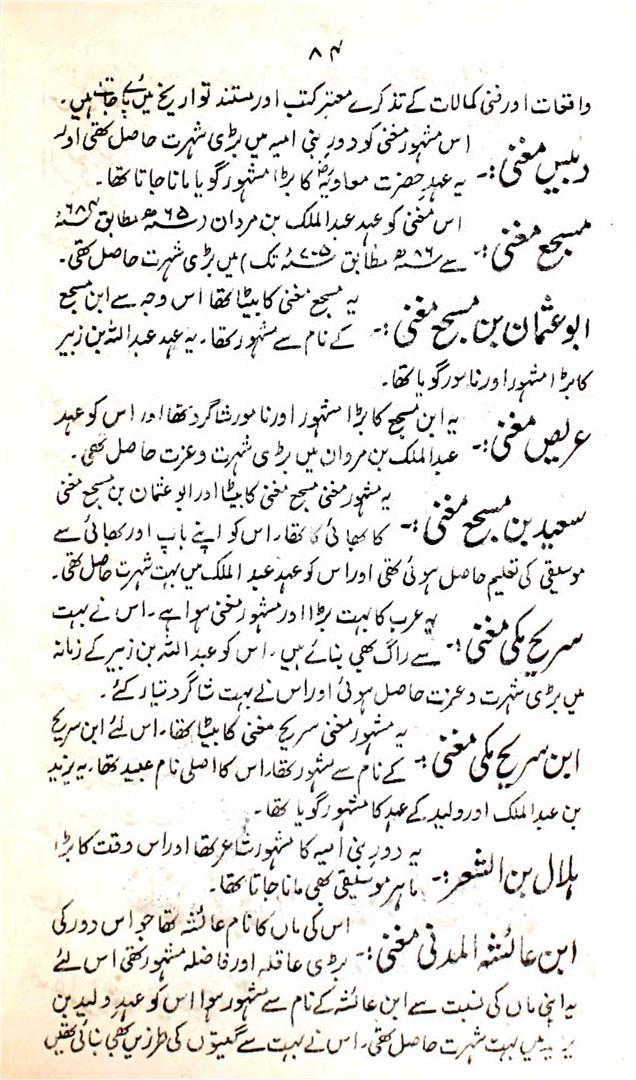 ۸۴
واقعات اور فنی کمالات کے تذکرے معتبر کتب اور مستند تواریخ میں پائے جاتے ہیں۔
اس مشہور مغنی کو دور بنی امیہ میں بڑی شہرت حاصل تھی اور
مغنی :۔ یہ عہد حضرت معاویہؓ کا بڑا مشہور گویا مانا جاتا تھا۔
اس مغنی کو عہد عبدالملک بن مردان (۶۵ھ مطابق ۶۸۴ء
مسجح مغنی :۔ سے ۸۶ھ مطابق ۷۰۵ء تک) میں بڑی شہرت حاصل تھی۔
یہ مسجح مغنی کا بیٹا تھا اس وجہ سے ابن مسجح
ابو عثمان بن مسجح مغنی :۔ کے نام سے مشہور تھا۔ یہ عہد عبداللہ بن زبیر
کا بڑا مشہور اور نامور گویا تھا۔
یہ ابن مسجح کا بڑا مشہور اور نامور شاگرد تھا اور اس کو عہد
عریض مغنی :۔ عبدالملک بن مردان میں بڑی شہرت و عزت حاصل تھی۔
یہ مشہور مغنی مسجح مغنی کا بیٹا اور ابو عثمان بن مسجح مغنی
سعید بن مسجح مغنی :۔ کا بھائی تھا۔ اس کو اپنے باپ اور بھائی سے
موسیقی کی تعلیم حاصل ہوئی تھی اور اس کو عہد عبدالملک میں بہت شہرت حاصل تھی۔
یہ عرب کا بہت بڑا اور مشہور مغنی ہوا ہے۔ اس نے بہت
سریح مکی مغنی :۔ سے راگ بھی بنائے ہیں۔ اس کو عبداللہ بن زبیر کے زمانہ
میں بڑی شہرت و عزت حاصل ہوئی اور اس نے بہت شاگرد تیار کئے۔
یہ مشہور مغنی سریح مغنی کا بیٹا تھا۔ اس لئے ابن سریح
ابن سریح مکی مغنی :۔ کے نام سے مشہور تھا۔ اس کا اصلی نام عبید تھا۔ یہ یزید
بن عبدالملک اور ولید کے عہد کا مشہور گویا تھا۔
یہ دور بنی امیہ کا مشہور شاعر تھا اور اس وقت کا بڑا
ہلال بن الشعر :۔ ماہر موسیقی بھی مانا جاتا تھا۔
اس کی ماں کا نام عائشہ تھا جو اس دور کی
ابن عائشہ المدنی مغنی :۔ بڑی عاقلہ اور فاضلہ مشہور تھی اس لئے
یہ اپنی ماں کی نسبت سے ابن عائشہ کے نام سے مشہور ہوا اس کو عہد ولید بن
میں بہت شہرت حاصل تھی۔ اس نے بہت سے گیتوں کی طرزیں بھی بنائی تھیں